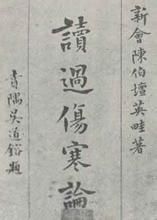 新會陳伯壇英畦著
讀過傷寒論
番禺吳道鎔題